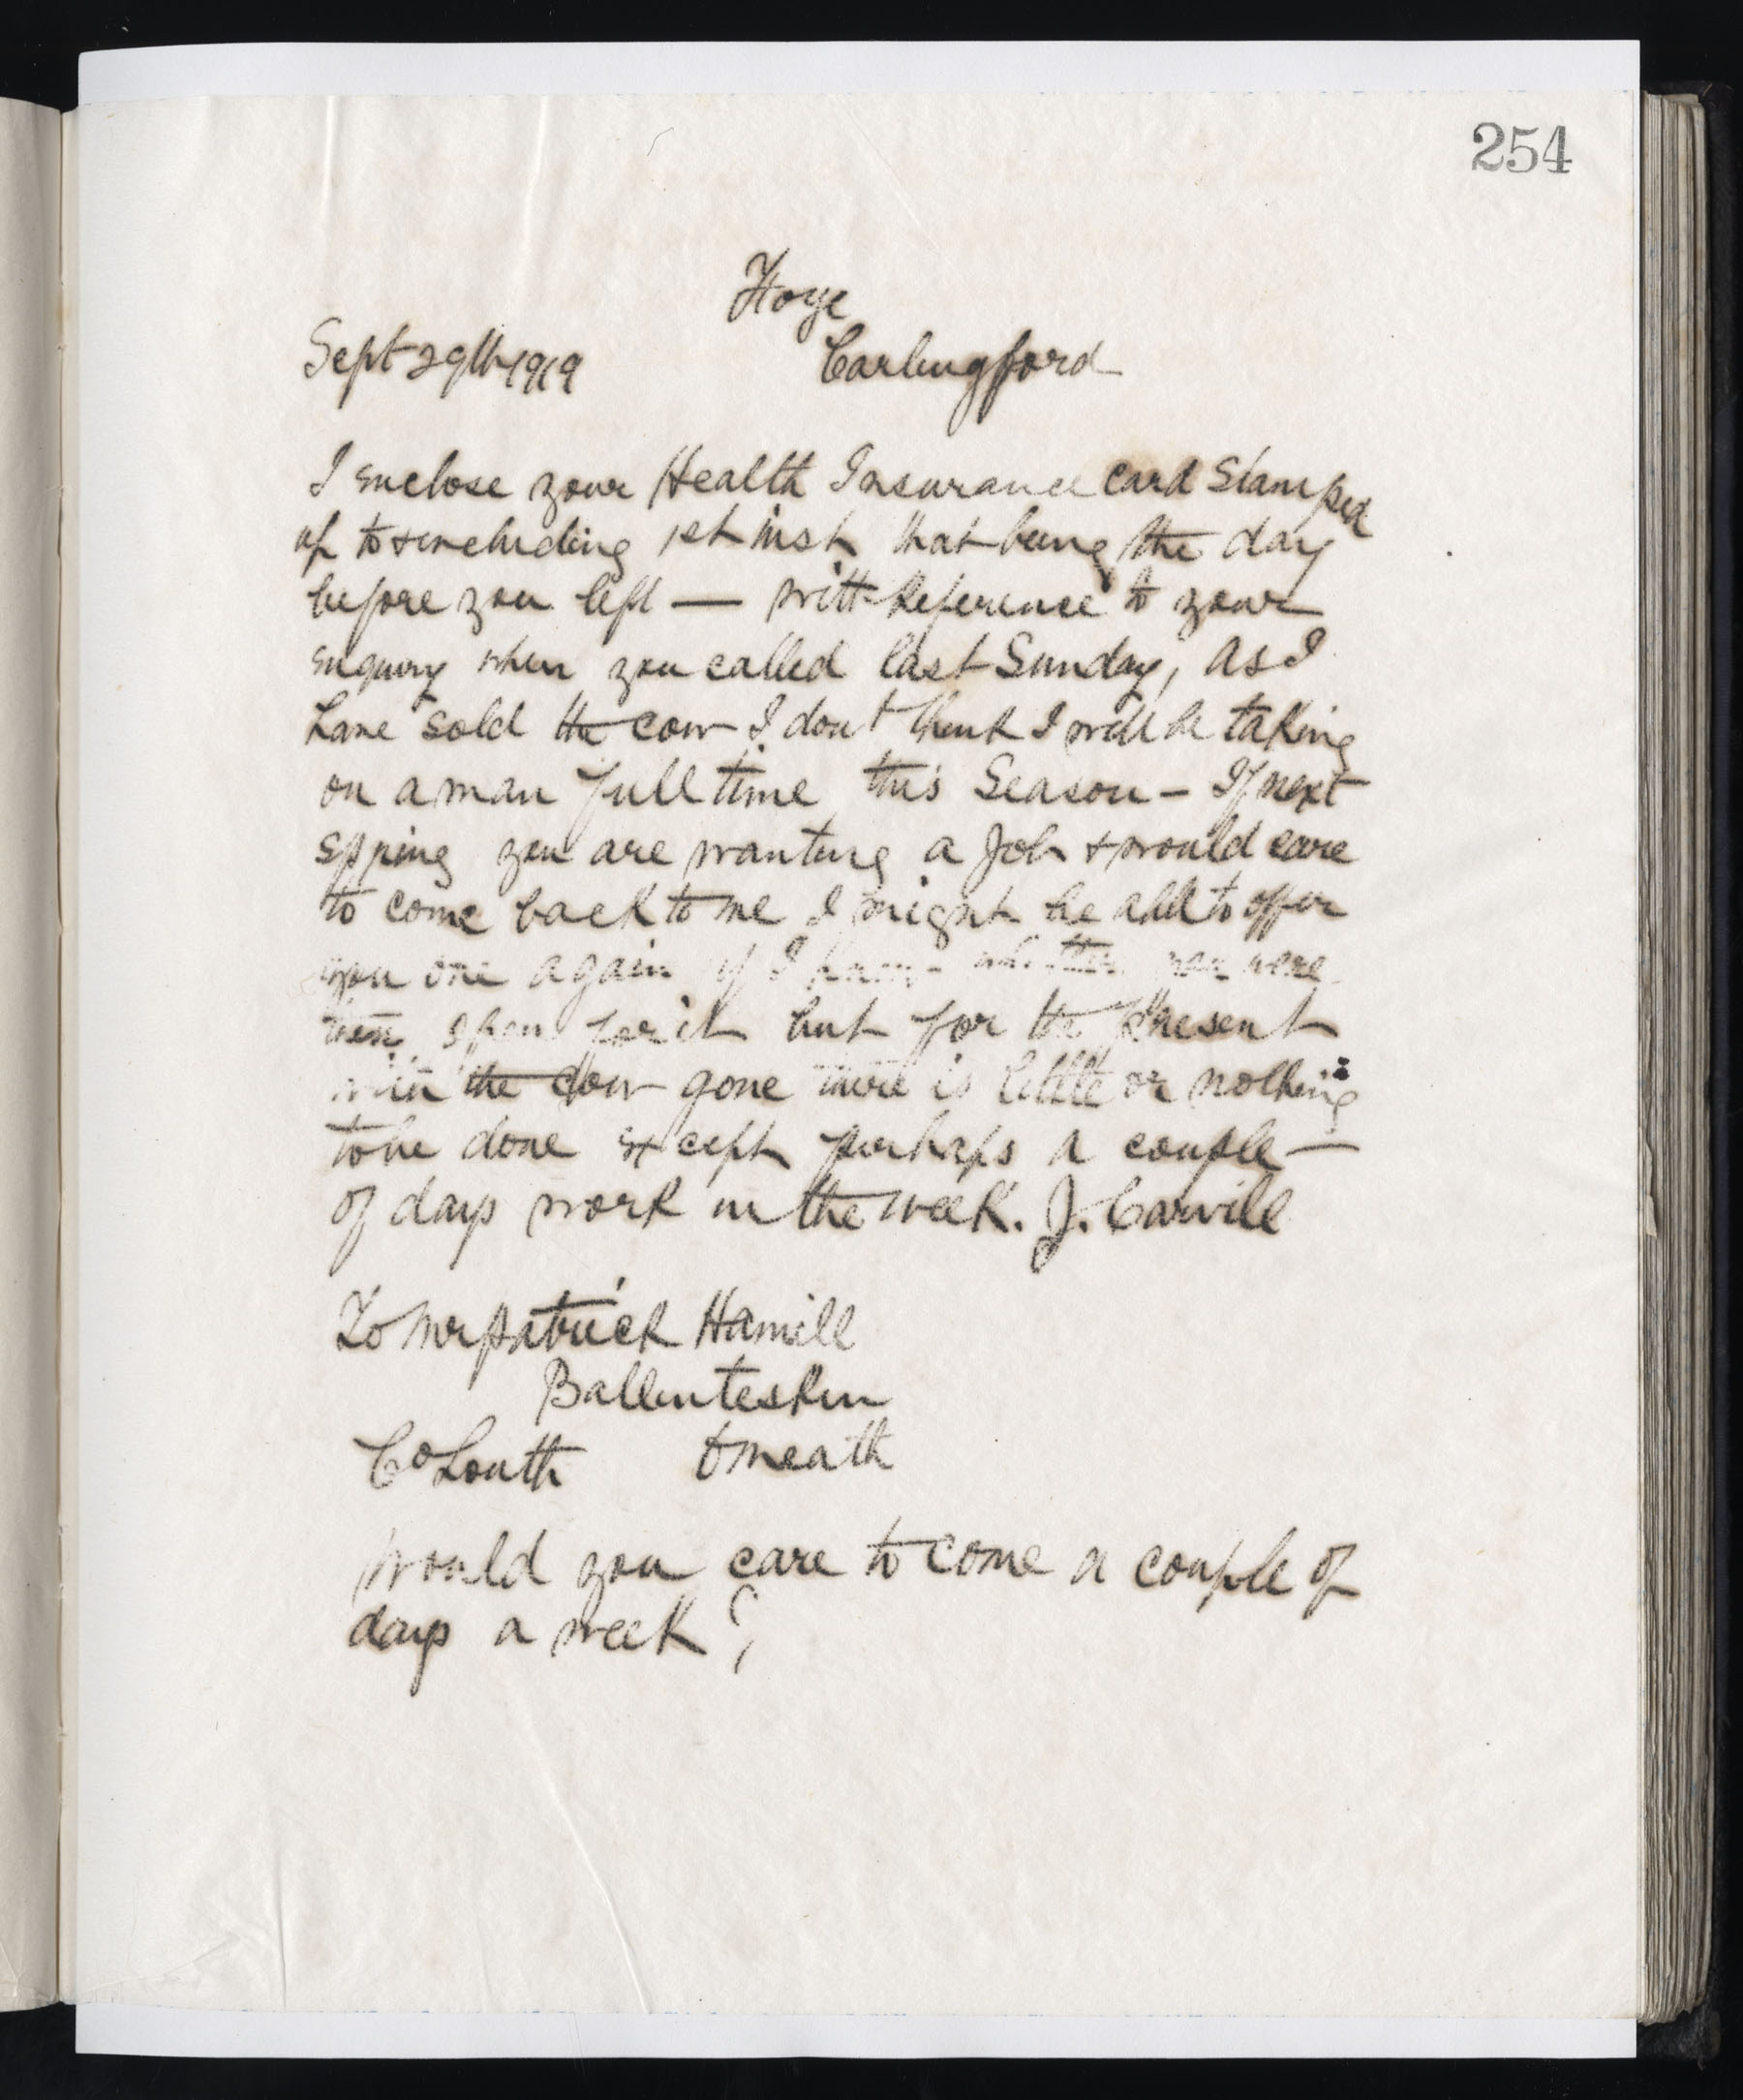 254
Hoye
Sept 29th 1919 Carlingford
I enclose your Health Insurance card Stamped
up to & including 1st inst that being the day
before you left — with Reference to your
enquiry when you called last Sunday, as I
have sold the cow I dont think I will be taking
on a man full time this Season - If next
spring you are wanting a Job & would care
to come back to me I might be able to offer
you one again if I knew whether you were
then open for it but for the present
with the cow gone there is little or nothing
to be done except perhaps a couple —
of days work in the week. J. Carvill
To Mr Patrick Hamill
Ballinteskin
Co Louth Omeath
Would you care to come a couple of
days a week ?